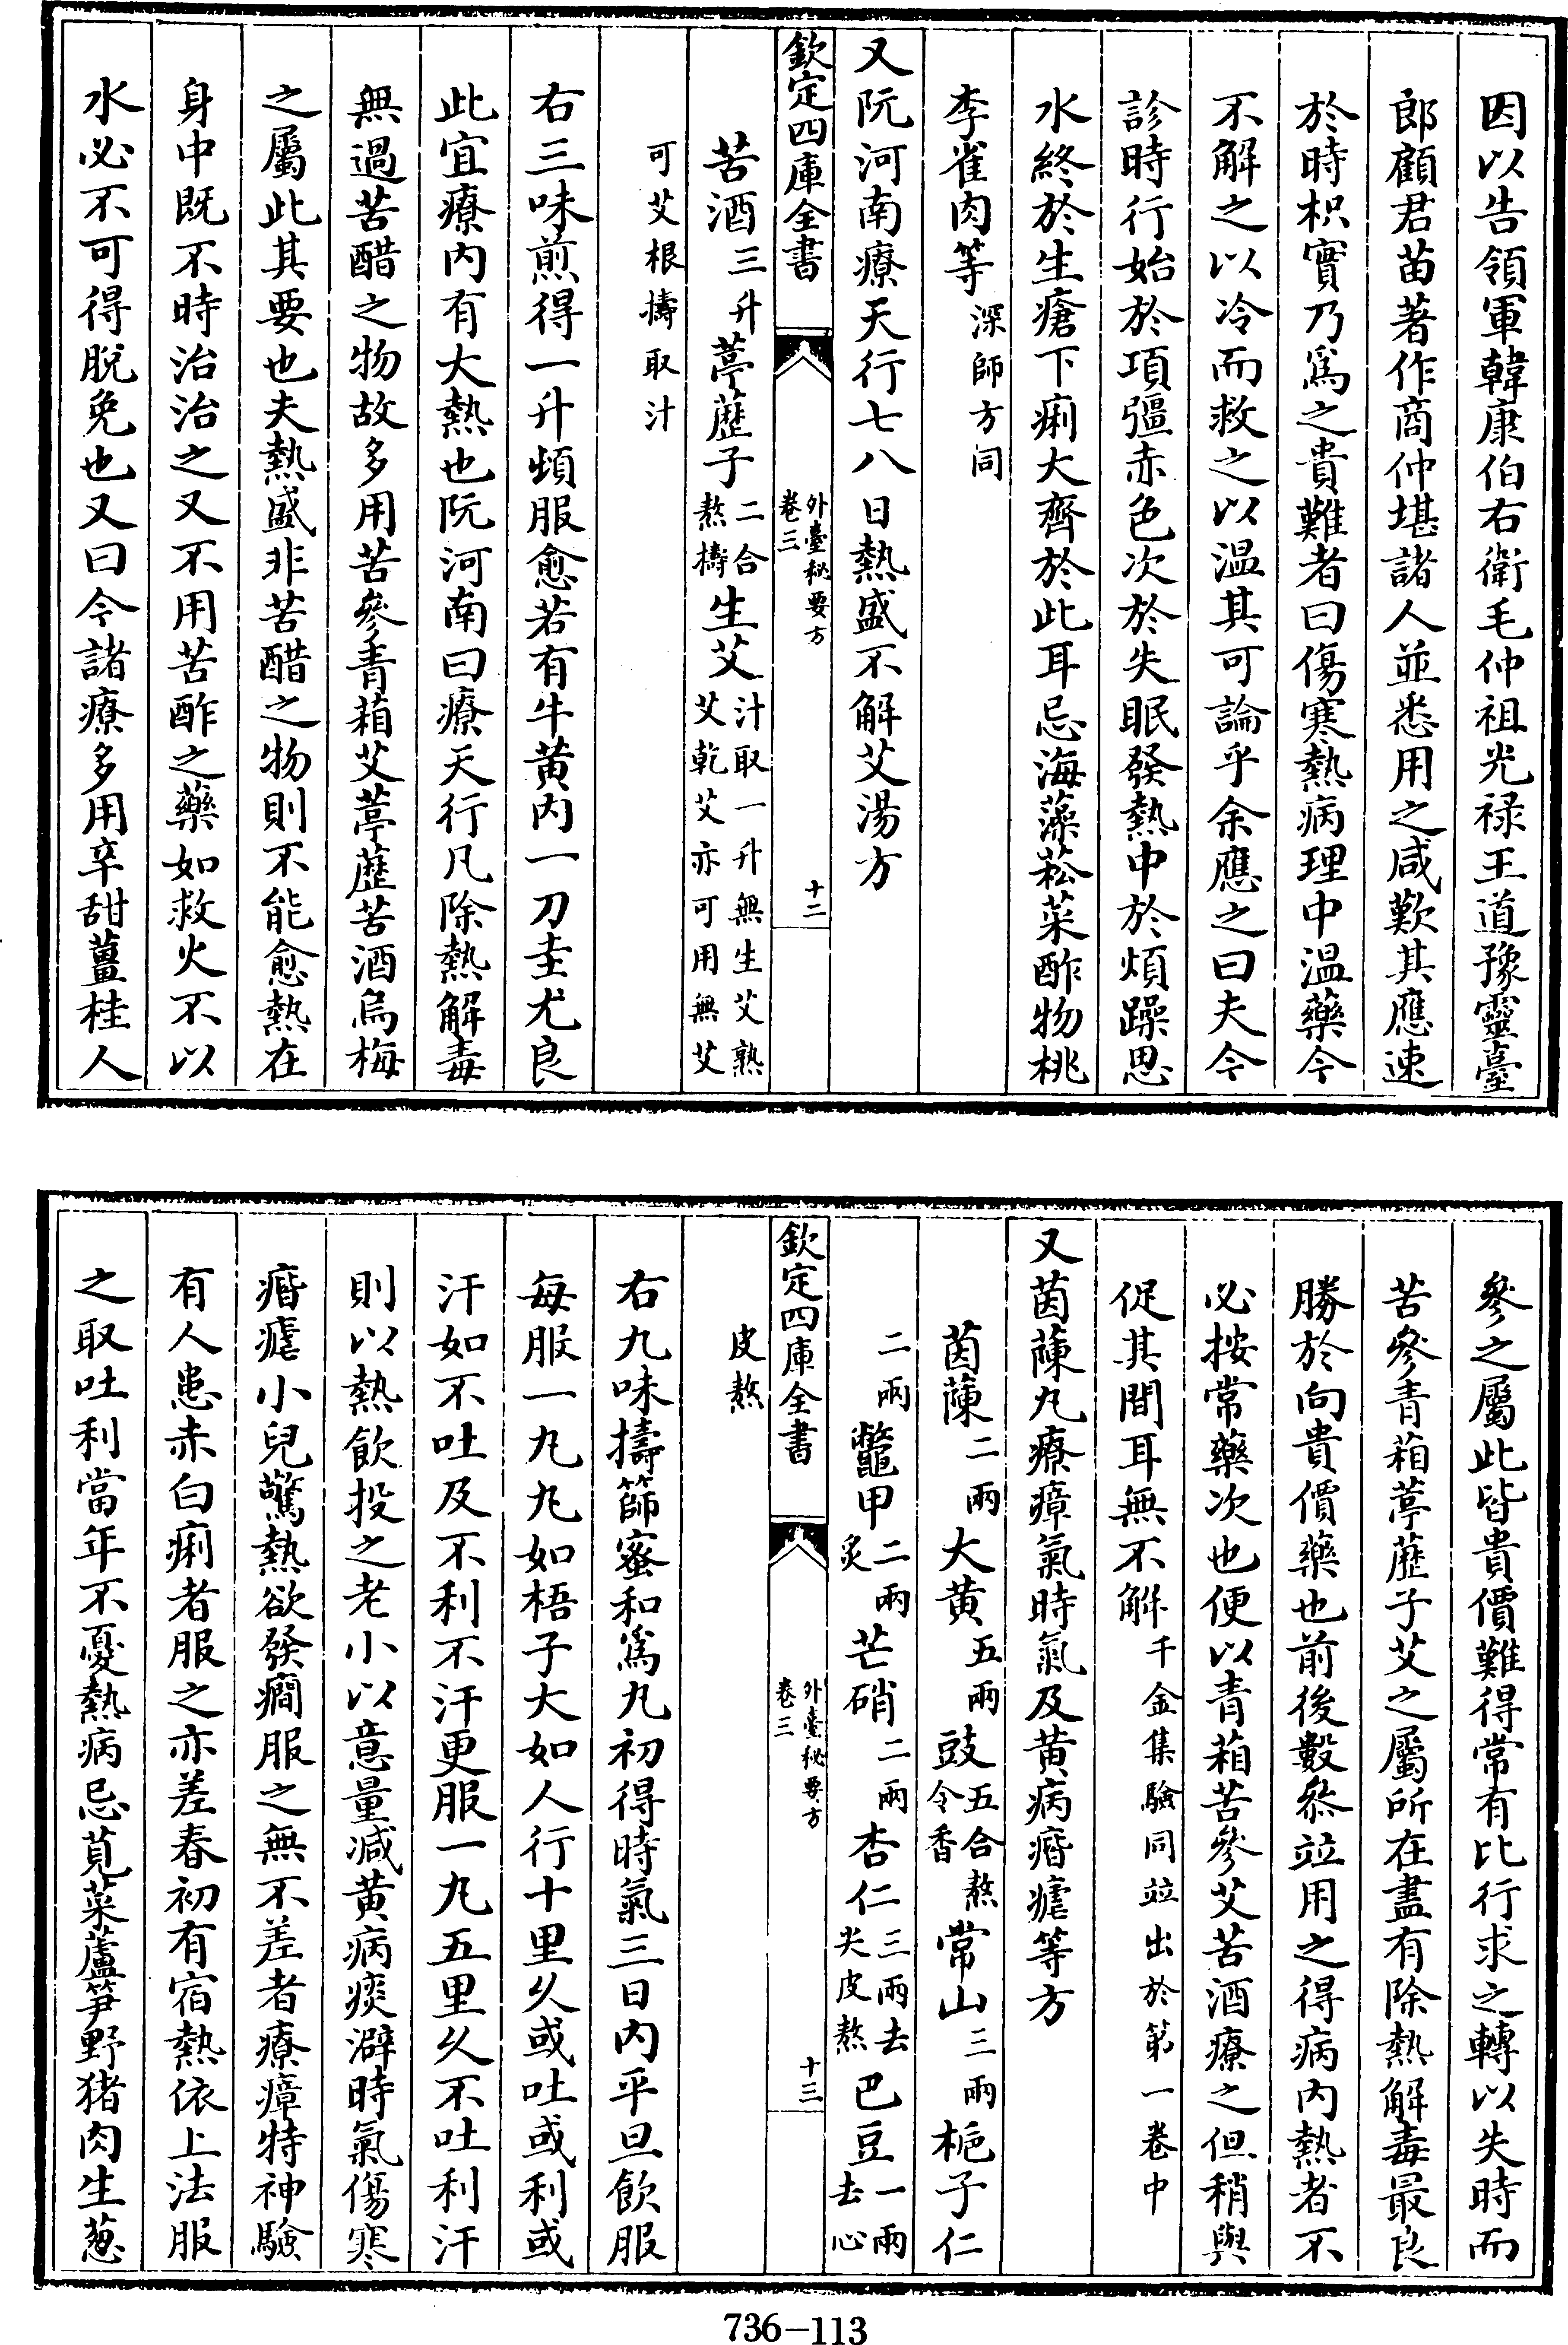 因以告領軍韓康伯右衛毛仲祖光禄王道豫靈臺
郎顧君苗著作商仲堪諸人並悉用之咸歎其應速
於時枳實乃爲之貴難者曰傷寒熱病理中温藥今
不解之以冷而救之以温其可論乎余應之曰夫今
診時行始於項彊赤色次於失眠發熱中於煩躁思
水終於生瘡下痢大齊於此耳忌海藻菘菜酢物桃
李雀肉等深師方同
又阮河南療天行七八日熱盛不解艾湯方
欽定四庫全書
外臺秘要方
卷三
十二
苦酒三升葶藶子二合熬擣生艾汁取一升無生艾熟艾乾艾亦可用無艾
可艾根擣取汁
右三味煎得一升頓服愈若有牛黄内一刀圭尤良
此宜療内有大熱也阮河南曰療天行凡除熱解毒
無過苦醋之物故多用苦參青葙艾葶藶苦酒烏梅
之屬此其要也夫熱盛非苦醋之物則不能愈熱在
身中既不時治治之又不用苦酢之藥如救火不以
水必不可得脱免也又曰今諸療多用辛甜薑桂人
參之屬此皆貴價難得常有比行求之轉以失時而
苦參青葙葶藶子艾之屬所在盡有除熱解毒最良
勝於向貴價藥也前後數叅竝用之得病内熱者不
必按常藥次也便以青葙苦參艾苦酒療之但稍與
促其間耳無不解千金集驗同竝出於第一卷中
又茵蔯丸療瘴氣時氣及黄病痻瘧等方
茵蔯二兩大黄五兩豉五合熬令香常山三兩梔子仁
二兩鼈甲二兩炙芒硝二兩杏仁三兩去尖皮熬巴豆一兩去心
欽定四庫全書
外臺秘要方
卷三
十三
皮熬
右九味擣篩蜜和爲丸初得時氣三日内平旦飲服
每服一丸丸如梧子大如人行十里久或吐或利或
汗如不吐及不利不汗更服一丸五里久不吐利汗
則以熱飲投之老小以意量减黄病痰澼時氣傷寒
痻瘧小兒驚熱欲發癎服之無不差者療瘴特神驗
有人患赤白痢者服之亦差春初有宿熱依上法服
之取吐利當年不憂熱病忌莧菜蘆笋野猪肉生葱
736-113